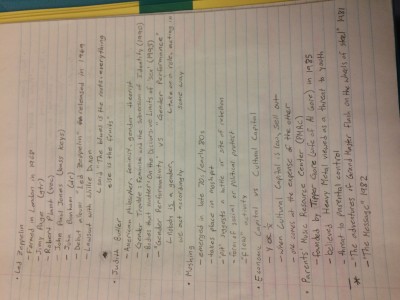 • Led Zeppelin
- Formed in London in 1968
- Jimmy Page (gtr)
- Robert Plant (vox)
- John Paul Jones (bass/keys)
- John Bonham (dr)
- Debut album "Led Zeppelin" released in 1969
- Lawsuit with Willie Dixon
"The blues is the roots, everything
else is the fruits"
• Judith Butler
- American philosopher, feminist, gender theorist
- "Gender Trouble: Feminism and the Subversion of Identity" (1990)
- "Bodies that matter: On the Discursive Limits of 'Sex'" (1993)
- "Gender Performativity" vs "Gender Performance"
- effects a gender,
we act accordingly
take on a role, acting in
some way
• Moshing
- emerged in late 70s/early 80s
- takes place in moshpit
- "pit" suggests a battle or site of rebellion
- form of social or political protest
- "flow" activity
• Economic Capital vs Cultural Capital
- when cultural capital is lost, sell out
- one comes at the expense of the other
• Parents Music Resource Center (PMRC) in 1985
- founded by Tipper Gore (wife of Al Gore)
- believed Heavy Metal viewed as a threat to youth
threat to parental control
* - "The Adventures of Grandmaster Flash on the wheels of steel" 1981
- "The Message" 1982